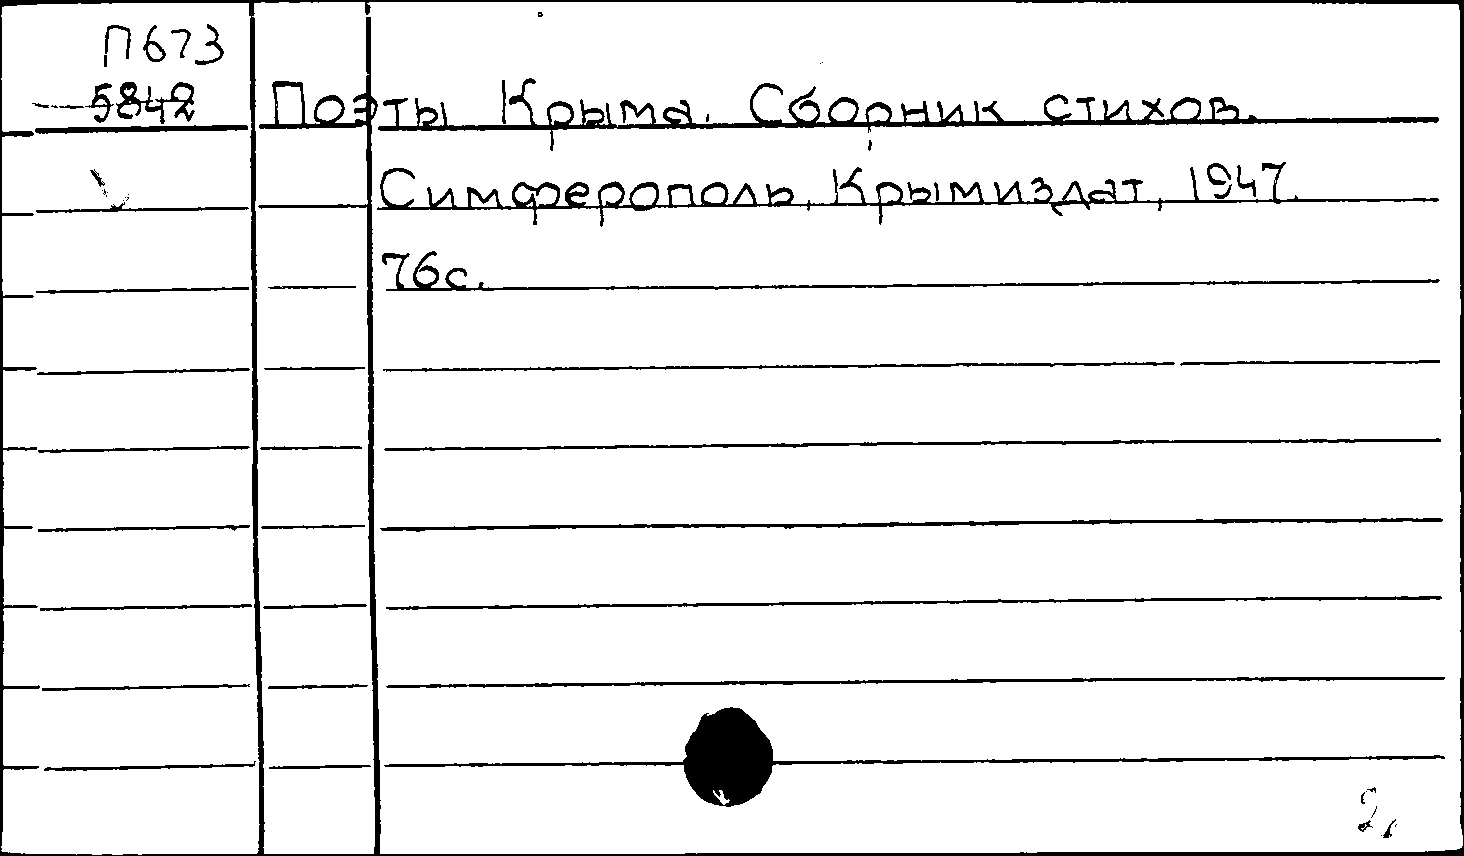 П673
5842 Поэты Крыма. Сборник стихов.
Симферополь, Крымиздат, 1947.
76с.
2,